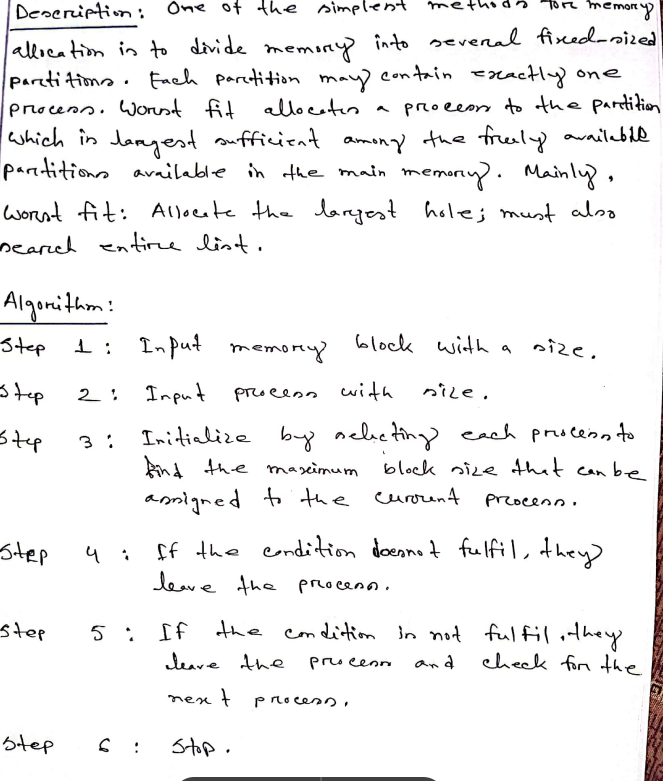 Description: One of the simplest methods for memory
allocation is to divide memory into several fixed-sized
partitions. Each partition may contain exactly one
process. Worst fit allocates a process to the partition
which is largest sufficient among the freely available
partitions available in the main memory. Mainly,
worst fit: Allocate the largest hole; must also
search entire list.
Algorithm:
Step 1: Input memory block with a size.
Step 2: Input process with size.
Step 3: Initialize by selecting each process to
find the maximum block size that can be
assigned to the current process.
Step 4: If the condition doesnot fulfil, they
leave the process.
Step 5: If the condition is not fulfil, they
leave the process and check for the
next process.
Step 6: Stop.